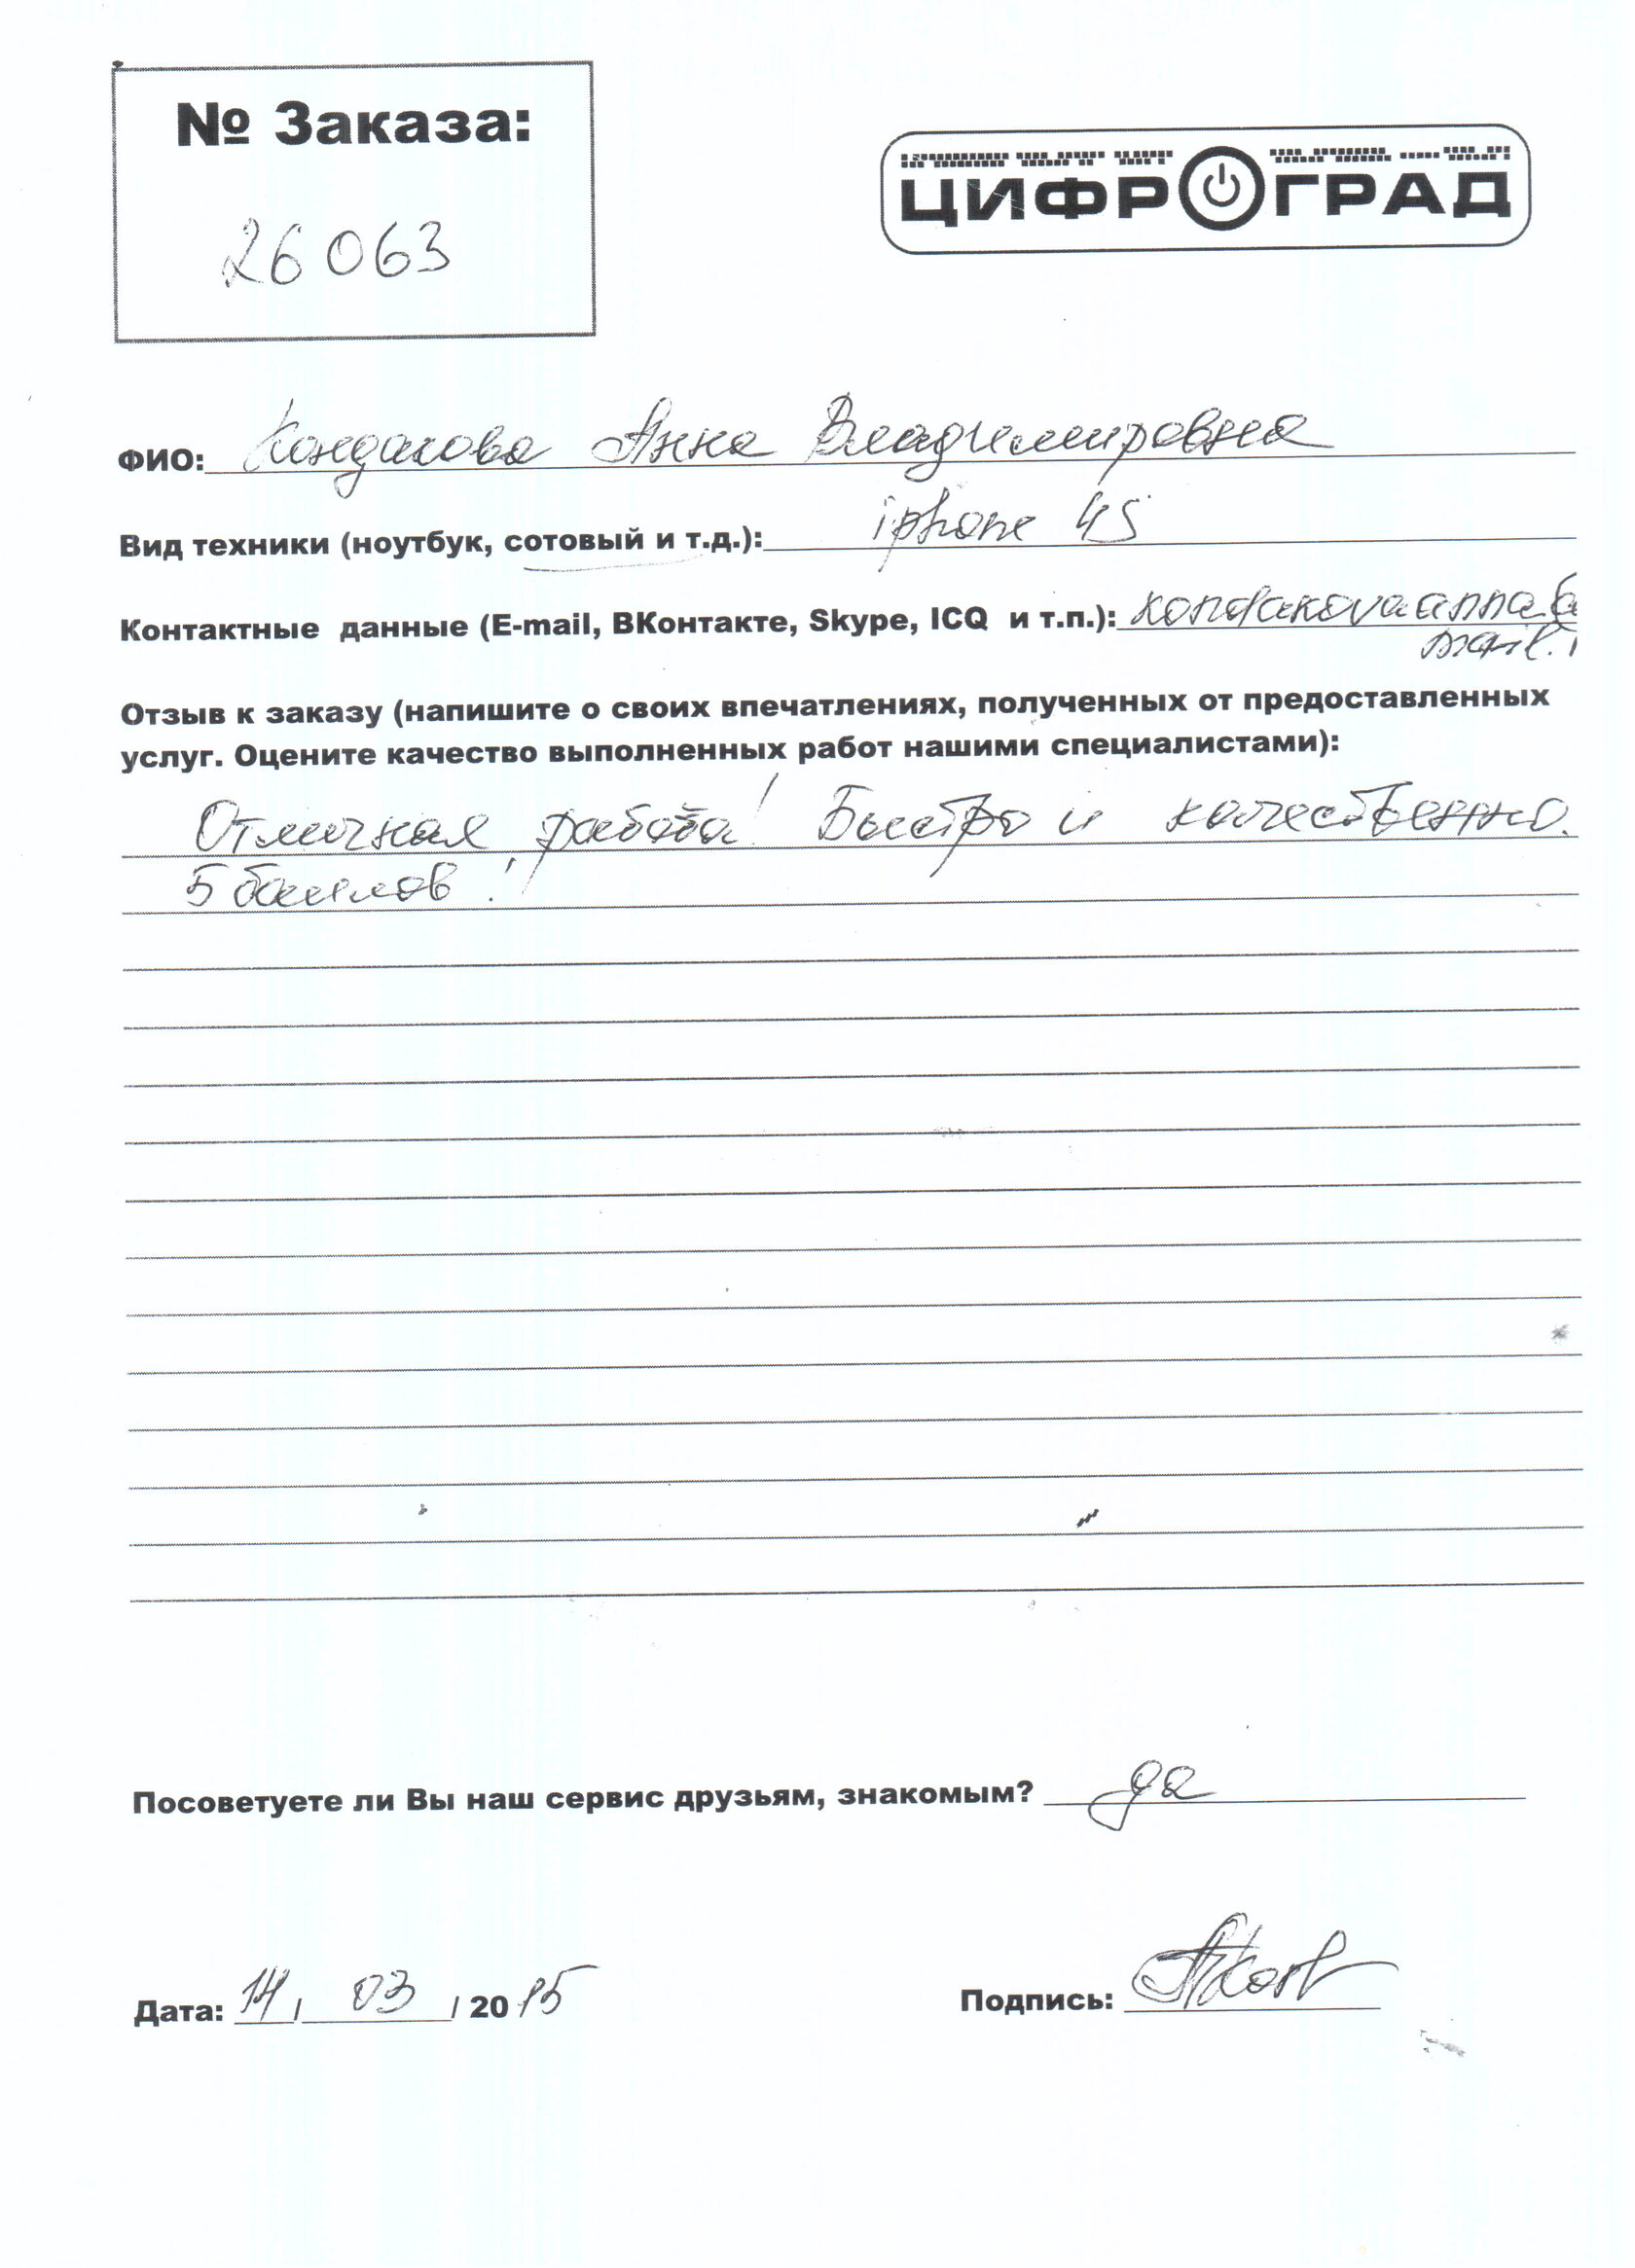 № Заказа:
26063
ЦИФРОГРАД
ФИО: Кондакова Анна Владимировна
Вид техники (ноутбук, сотовый и т.д.): iphone 4S
Контактные данные (E-mail, ВКонтакте, Skype, ICQ и т.п.): kondakovaanna@
mail.
Отзыв к заказу (напишите о своих впечатлениях, полученных от предоставленных
услуг. Оцените качество выполненных работ нашими специалистами):
Отличная работа! Быстро и качественно.
5 баллов!
Посоветуете ли Вы наш сервис друзьям, знакомым? да
Дата: 14 / 03 / 2015 Подпись: